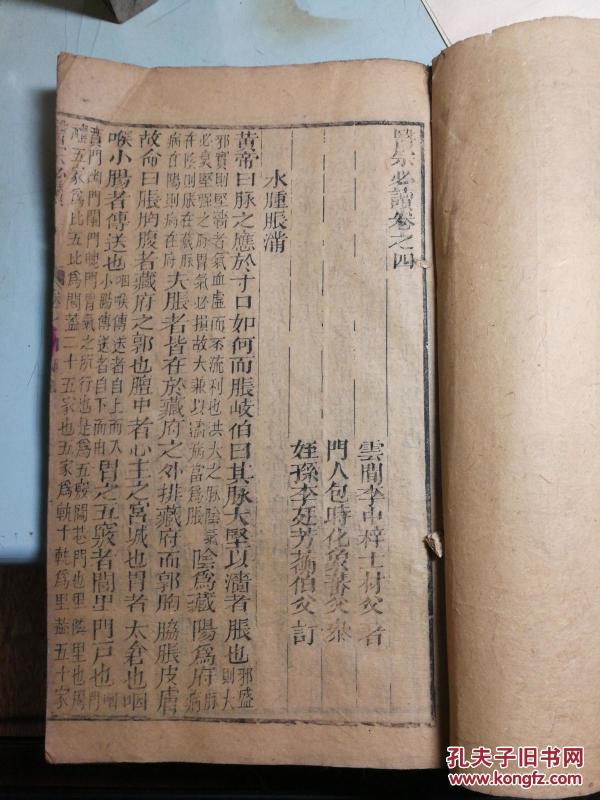 醫宗必讀卷之四
雲間李中梓士材父著
門人包時化象蕃父叅
姪孫李廷芳蘅伯父訂
水腫脹滿
黃帝曰脉之應於寸口如何而脹岐伯曰其脉大堅以濇者脹也邪盛則大
邪實則堅濇者氣血虛而不流利也洪大之脉陰氣
必衰堅强之脉胃氣必損故大兼以濇病當爲脹陰爲藏陽爲府脉病
在陰則脹在藏脉
病在陽則病在府夫脹者皆在於藏府之外排藏府而郭胸脇脹皮膚
故命曰脹胸腹者藏府之郭也膻中者心主之宮城也胃者太倉也咽
喉小腸者傳送也咽喉傳送者自上而入
小腸傳送者自下而出胃之五竅者閭里門戶也咽門
賁門幽門闌門魄門胃氣之所行也是爲五竅閭巷門也里隣里也周
禮五家爲比五比爲閭蓋二十五家也五家爲軌十軌爲里蓋五十家
孔夫子旧书网
www.kongfz.com